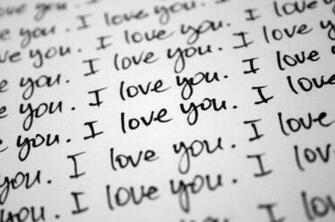 love you.
love you. I love you.
ve you. I love you. I love
love you. I love you. I love you.
e you. I love you. I love you.
love you. I love you. I love
ve you. I love you. I love
you. I love you. I love
I love you. I love
I love you. I lo